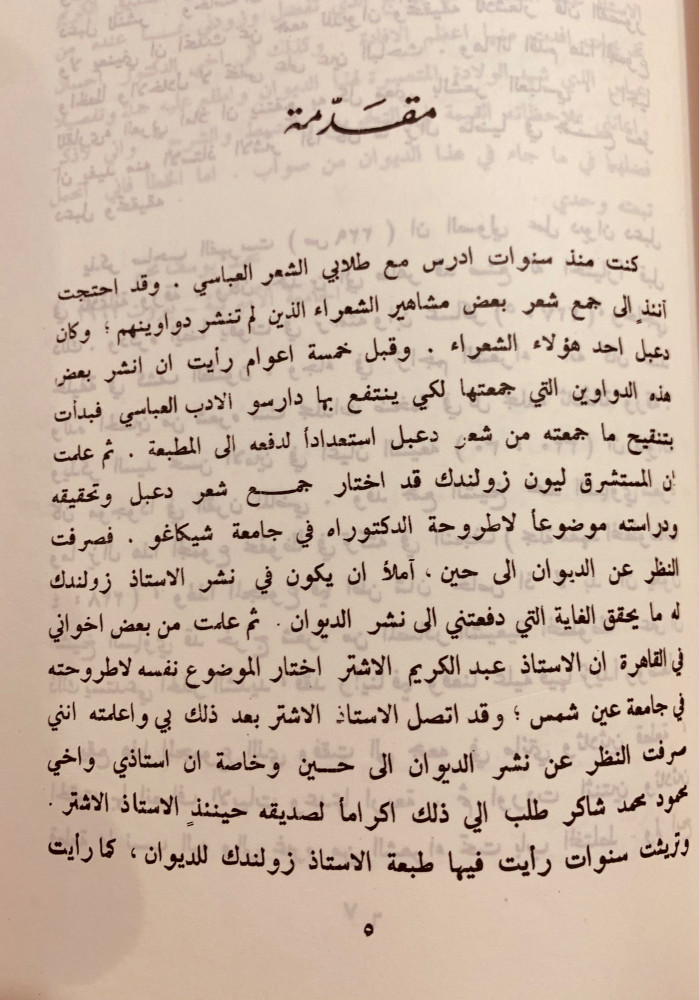 مقدّمة
كنت منذ سنوات ادرس مع طلابي الشعر العباسي . وقد احتجت
آنئذٍ الى جمع شعر بعض مشاهير الشعراء الذين لم تنشر دواوينهم ؛ وكان
دعبل احد هؤلاء الشعراء . وقبل خمسة اعوام رأيت ان انشر بعض
هذه الدواوين التي جمعتها لكي ينتفع بها دارسو الادب العباسي فبدأت
بتنقيح ما جمعته من شعر دعبل استعداداً لدفعه الى المطبعة . ثم علمت
ان المستشرق ليون زولندك قد اختار جمـــع شعر دعبل وتحقيقه
ودراسته موضوعاً لاطروحة الدكتوراه في جامعة شيكاغو . فصرفت
النظر عن الديوان الى حين ، آملاً ان يكون في نشر الاستاذ زولندك
له ما يحقق الغاية التي دفعتني الى نشر الديوان . ثم علمت من بعض اخواني
في القاهرة ان الاستاذ عبد الكريم الاشتر اختار الموضوع نفسه لاطروحته
في جامعة عين شمس ؛ وقد اتصل الاستاذ الاشتر بعد ذلك بي واعلمته انني
صرفت النظر عن نشر الديوان الى حــين وخاصة ان استاذي واخي
محمود محمد شاكر طلب الي ذلك اكراماً لصديقه حينئذٍ الاستاذ الاشتر .
وتريثت سنوات رأيت فيها طبعة الاستاذ زولندك للديوان ، كما رأيت
٥